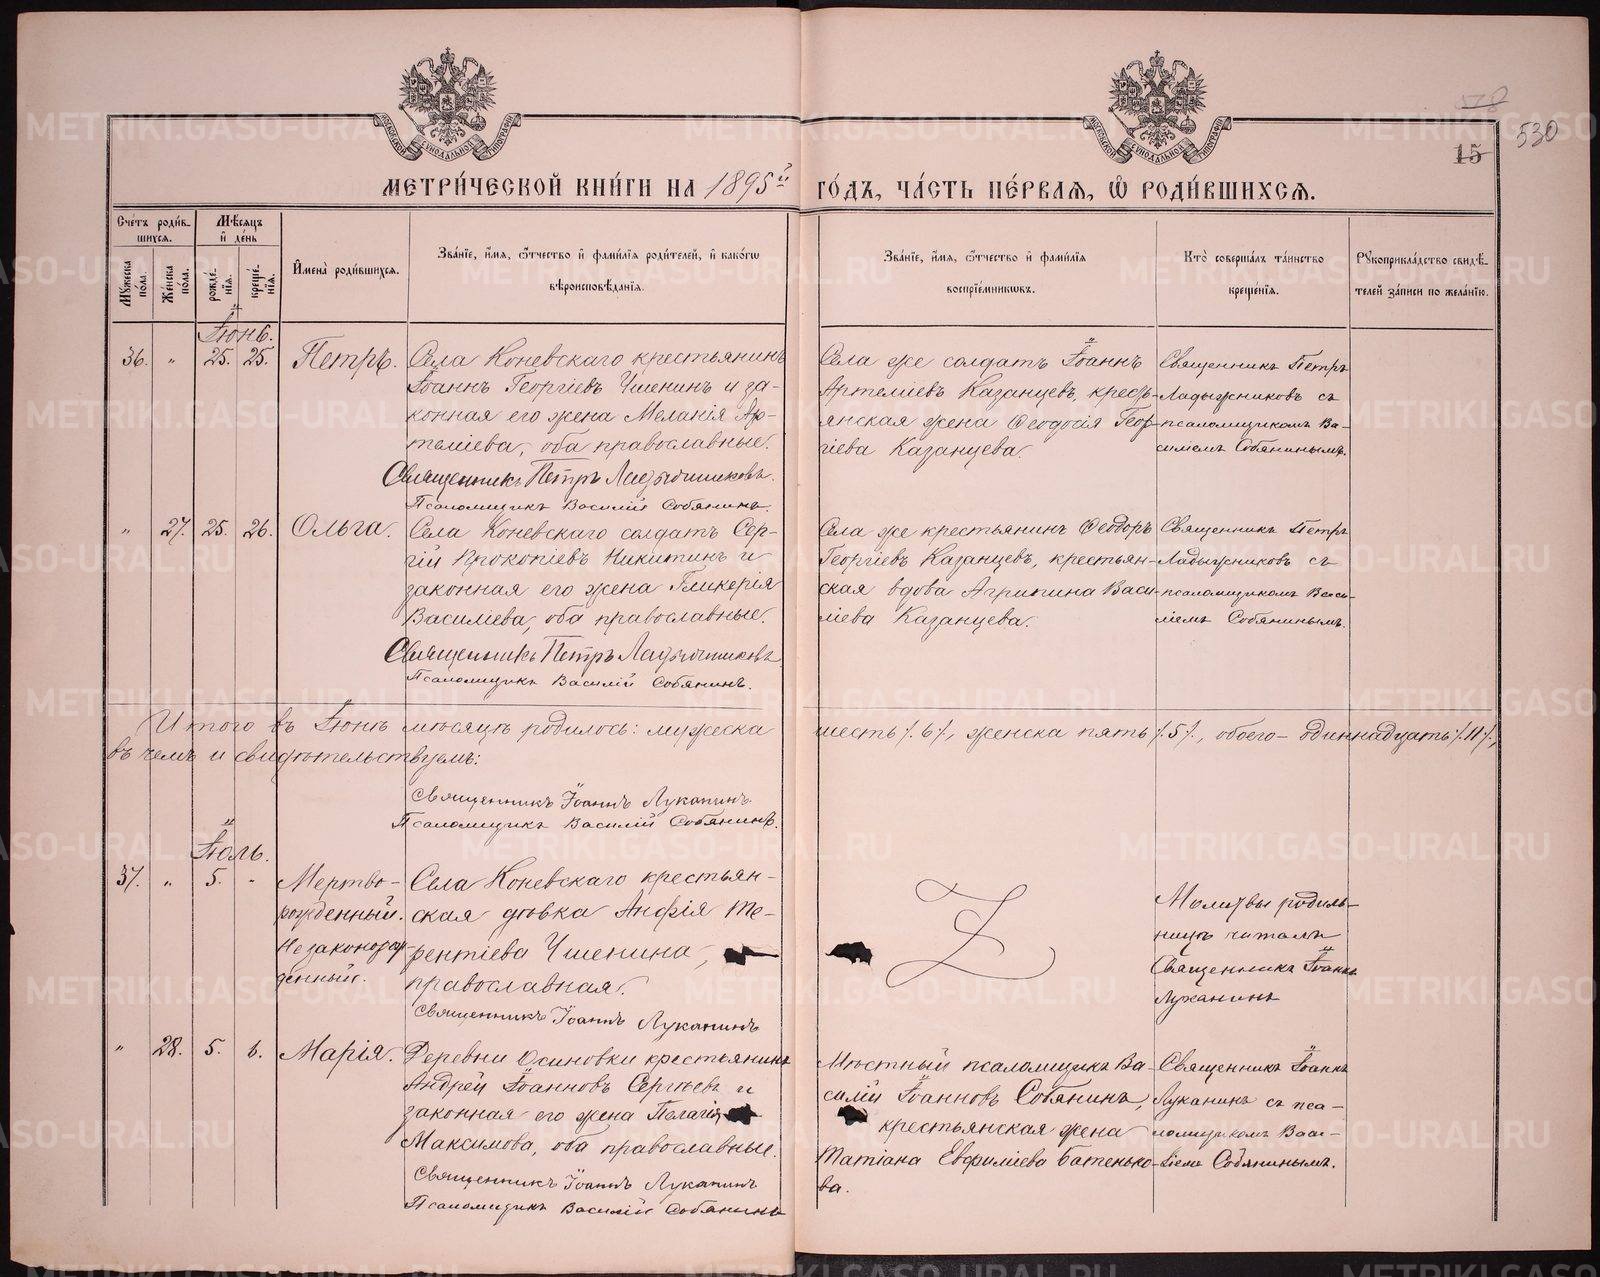 528
530
15
МОСКОВСКОЙ СѴНОДАЛЬНОЙ ТИПОГРАФІИ
МОСКОВСКОЙ СѴНОДАЛЬНОЙ ТИПОГРАФІИ
МЕТРИ́ЧЕСКОЙ КНИ́ГИ НА 1895й ГО́ДЪ, ЧА́СТЬ ПЕ́РВАѦ, Ѡ҆ РОДИ́ВШИХСѦ.
Сче́тъ роди́в-
шихсѧ.
Мѣ́сѧцъ
и҆ де́нь
Мꙋ́жеска
по́ла.
Же́нска
по́ла.
рожде́-
нїѧ.
креще́-
нїѧ.
И҆мена̀ роди́вшихсѧ.
Зва́нїе, и҆́мѧ, ѻ҆́тчество и҆ фами́лїѧ роди́телей, и҆ како́гѡ
вѣроисповѣ́данїѧ.
Зва́нїе, и҆́мѧ, ѻ҆́тчество и҆ фами́лїѧ
воспрїе́мникѡвъ.
Кто̀ соверша́лъ та́инство
креще́нїѧ.
Рꙋкоприкла́дство свидѣ́-
телей за́писи по жела́нїю.
Іюнь.
36. „ 25. 25. Петръ.
Села Коневскаго крестьянинъ
Іоаннъ Георгіевъ Чшенинъ и за-
конная его жена Меланія Ар-
теміева, оба православные.
Священникъ Петръ Ладыжниковъ.
Псаломщикъ Василій Собянинъ.
Села же солдатъ Іоаннъ
Артеміевъ Казанцевъ, кресть-
янская жена Ѳеодосія Геор-
гіева Казанцева.
Священникъ Петръ
Ладыжниковъ съ
псаломщикомъ Ва-
силіемъ Собянинымъ.
„ 27. 25. 26. Ольга.
Села Коневскаго солдатъ Сер-
гій Прокопіевъ Никитинъ и
законная его жена Гликерія
Василіева, оба православные.
Священникъ Петръ Ладыжниковъ
Псаломщикъ Василій Собянинъ.
Села же крестьянинъ Ѳеодоръ
Георгіевъ Казанцевъ, крестьян-
ская вдова Агрипина Васи-
ліева Казанцева.
Священникъ Петръ
Ладыжниковъ съ
псаломщикомъ Васи-
ліемъ Собянинымъ.
Итого въ Іюнѣ мѣсяцѣ родилось: мужеска шесть /.6/., женска пять /.5/., обоего- одиннадцать /.11/.,
въ чемъ и свидѣтельствуемъ:
Священникъ Іоаннъ Луканинъ.
Псаломщикъ Василій Собянинъ.
Іюль.
37. „ 5. -
Мертво-
рожденный.
Незаконорож-
денный.
Села Коневскаго крестьян-
ская дѣвка Анфія Те-
рентіева Чшенина,
православная.
Священникъ Іоаннъ Луканинъ
Молитвы родиль-
ницѣ читалъ
Священникъ Іоаннъ
Луканинъ
„ 28. 5. 6. Марія.
Деревни Осиновки крестьянинъ
Андрей Іоанновъ Сергѣевъ и
законная его жена Пелагія
Максимова, оба православные.
Священникъ Іоаннъ Луканинъ
Псаломщикъ Василій Собянинъ
Мѣстный псаломщикъ Ва-
силій Іоанновъ Собянинъ,
крестьянская жена
Татіана Евфиміева Батенько-
ва.
Священникъ Іоаннъ
Луканинъ съ пса-
ломщикомъ Васи-
ліемъ Собянинымъ.
METRIKI.GASO-URAL.RU